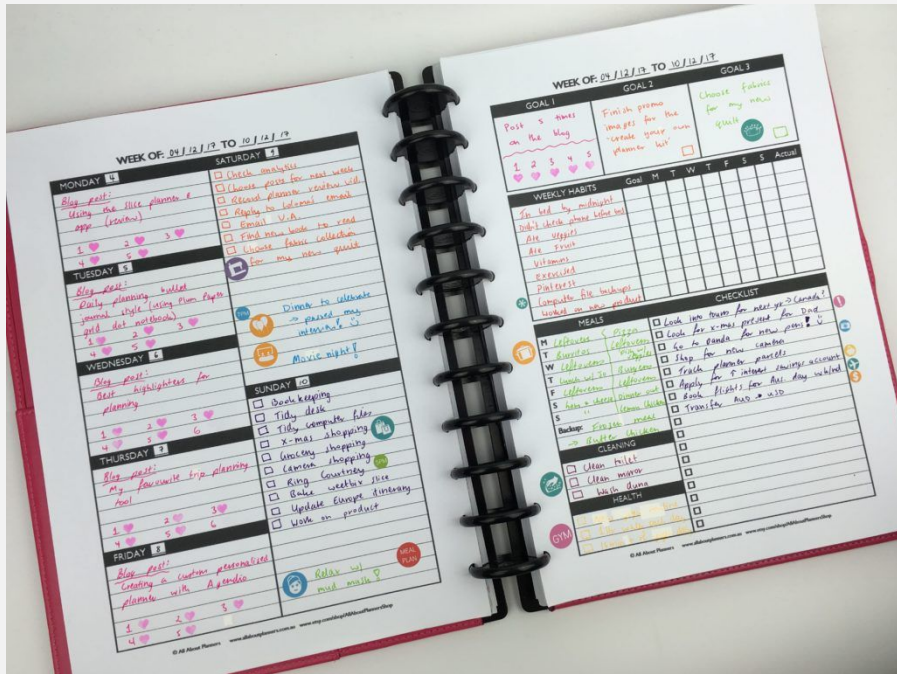 WEEK OF: 04/12/17 TO 10/12/17
MONDAY 4
Blog post:
Using the slice planner &
app (review)
1 2 3
4 5
TUESDAY 5
Blog post:
Daily planning bullet
journal style (using Plum Paper
grid dot notebook)
1 2 3
4 5
WEDNESDAY 6
Blog post:
Best highlighters for
planning
1 2 3
4 5 6
THURSDAY 7
Blog post:
My favourite trip planning
tool
1 2 3
4 5 6
FRIDAY 8
Blog post:
Creating a custom personalised
planner with Agendio
1 2 3
4 5
SATURDAY 9
Check analytics
Choose posts for next week
Record planner review vid.
Reply to Salomas email
Email V.A.
Find new book to read
Choose fabric collection
for my new quilt
7PM
Dinner to celebrate
→ passed my
interview!
Movie night!
SUNDAY 10
Bookkeeping
Tidy desk
Tidy computer files
X-mas shopping
Grocery shopping
Camera shopping
Ring Courtney
Bake weetbix slice
Update Europe itinerary
Work on product
Relax w/
mud mask!
MEAL
PLAN
© All About Planners www.allaboutplanners.com.au www.etsy.com/shop/AllAboutPlannersShop
WEEK OF: 04/12/17 TO 10/12/17
GOAL 1
Post 5 times
on the blog
1 2 3 4 5
GOAL 2
Finish promo
images for the
'create your own
planner kit'
GOAL 3
Choose fabrics
for my new
quilt
WEEKLY HABITS Goal M T W T F S S Actual
In bed by midnight
Didn't check phone before bed
Ate veggies
Ate Fruit
Vitamins
Exercised
Pinterest
Computer file backups
Worked on new product
MEALS
M Leftovers Pizza
T Burritos Leftovers
W Leftovers
T Burgers
F Leftovers Leftovers
S ham & cheese Dinner out
S " Lemon chicken
Backup: Frozen meal
→ Butter chicken
CLEANING
Clean toilet
Clean mirror
Wash duna
HEALTH
GYM
CHECKLIST
Look into tours for next yr → Canada?
Look for x-mas present for Dad
Go to Daiso for new pens!
Shop for new camera
Track planner parcels
Apply for ↑ interest savings account
Book flights for Aus. day w/kend
Transfer AUD → USD
© All About Planners www.allaboutplanners.com.au www.etsy.com/shop/AllAboutPlannersShop